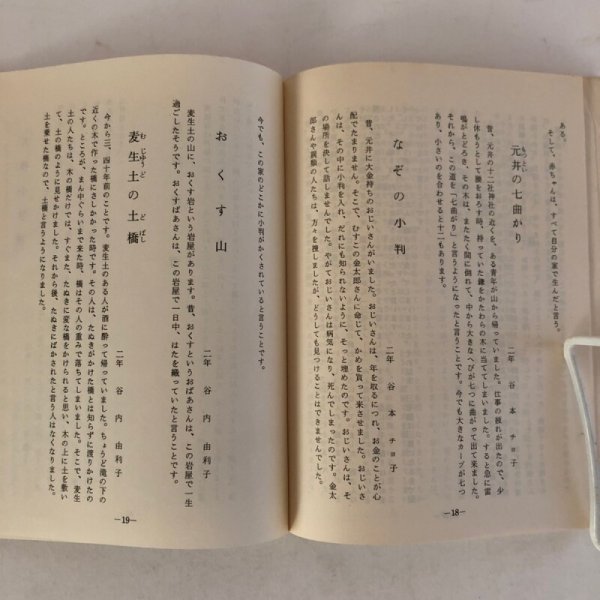 ある。
そして、赤ちゃんは、すべて自分の家で生んだと言う。
元井の七曲がり
二年 谷本チヨ子
昔、元井の十二社神社の近くを、ある青年が山から帰っていました。仕事の疲れが出たので、少
し休もうとして腰をおろす時、持っていた鎌をかたわらの木に当ててしまいました。すると急に雷
鳴がとどろき、その木は、またたく間に倒れて、中から大きなへびが七つに曲がって出て来ました。
それから、この道を「七曲がり」と言うようになったと言うことです。今でも大きなカーブが七つ
あり、小さいのを合わせると十二もあります。
なぞの小判
二年 谷本チヨ子
昔、元井に大金持ちのおじいさんがいました。おじいさんは、年を取るにつれ、お金のことが心
配でたまりません。そこで、むすこの金太郎さんに命じて、かめを買って来させました。おじいさ
んは、その中に小判を入れ、だれにも知られないように、そっと埋めたのです。おじいさんは、そ
の場所を決して話しませんでした。やがておじいさんは病気になり、死んでしまったのです。金太
郎さんや親類の人たちは、方々を捜しましたが、どうしても見つけることはできませんでした。
—18—
今でも、この家のどこかに小判がかくされていると言うことです。
おくす山
二年 谷内由利子
麦生土の山に、おくす岩という岩屋があります。昔、おくすというおばあさんは、この岩屋で一生
過ごしたそうです。おくすばあさんは、この岩屋で一日中、はたを織っていたと言うことです。
麦生土の土橋
むじゅうど どばし
二年 谷内由利子
今から三、四十年前のことです。麦生土のある人が酒に酔って帰っていました。ちょうど滝の下の
近くの木で作った橋にさしかかった時です。その人は、たぬきがかけた橋とは知らずに渡りかけたの
です。ところが、まん中ぐらいまで来た時、橋はその人の重みで落ちてしまいました。そこで、麦生
土の人たちは、木の橋だけでは、すぐまた、たぬきに変な橋をかけられると思い、木の上に土を敷い
て、土の橋のように見せかけました。それから後、たぬきにばかされたと言う人はなくなりました。
土を乗せた橋なので、土橋と言うようになりました。
—19—